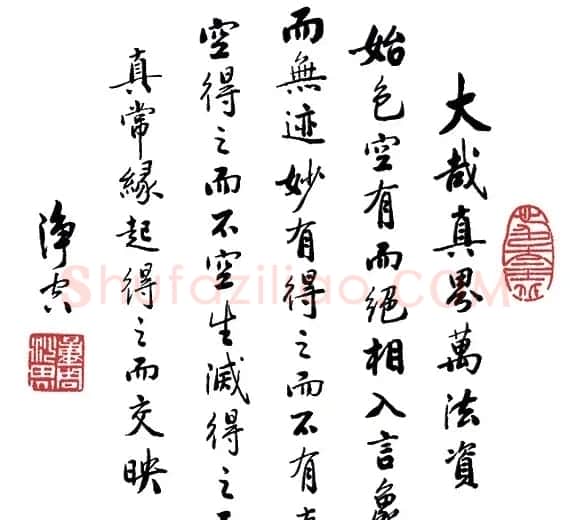 大哉真界萬法資
始色空有而絕相入言象
而無迹妙有得之而不有
空得之而不空生滅得之
真常緣起得之而交映
淨空
Shufaziliao.COM